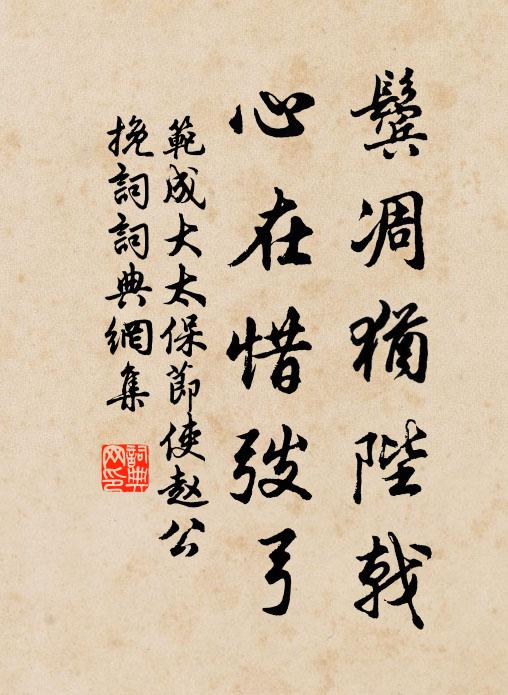 鬓凋犹陛戟
心在惜弢弓
範成大太保節使赵公
挽詞詞典網集
詞典网印